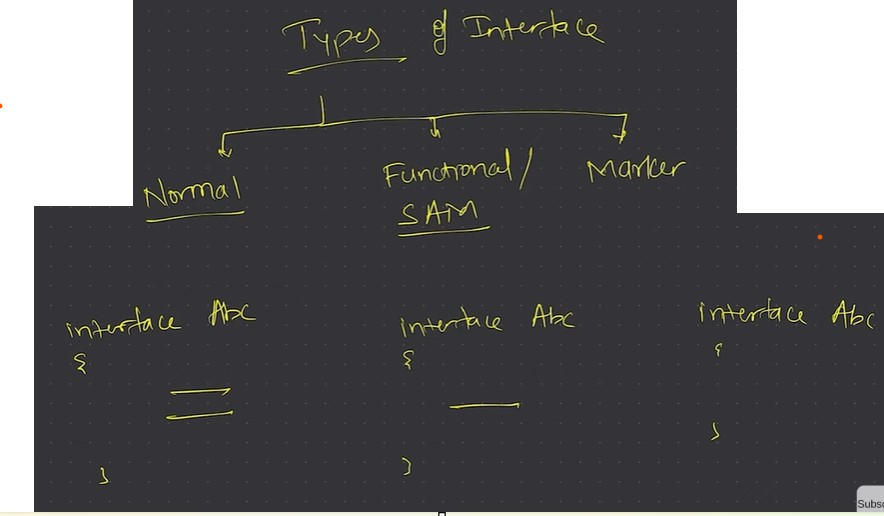 Types of Interface
Normal
Functional/
SAM
Marker
interface Abc
{
}
interface Abc
{
}
interface Abc
{
}
Subsc